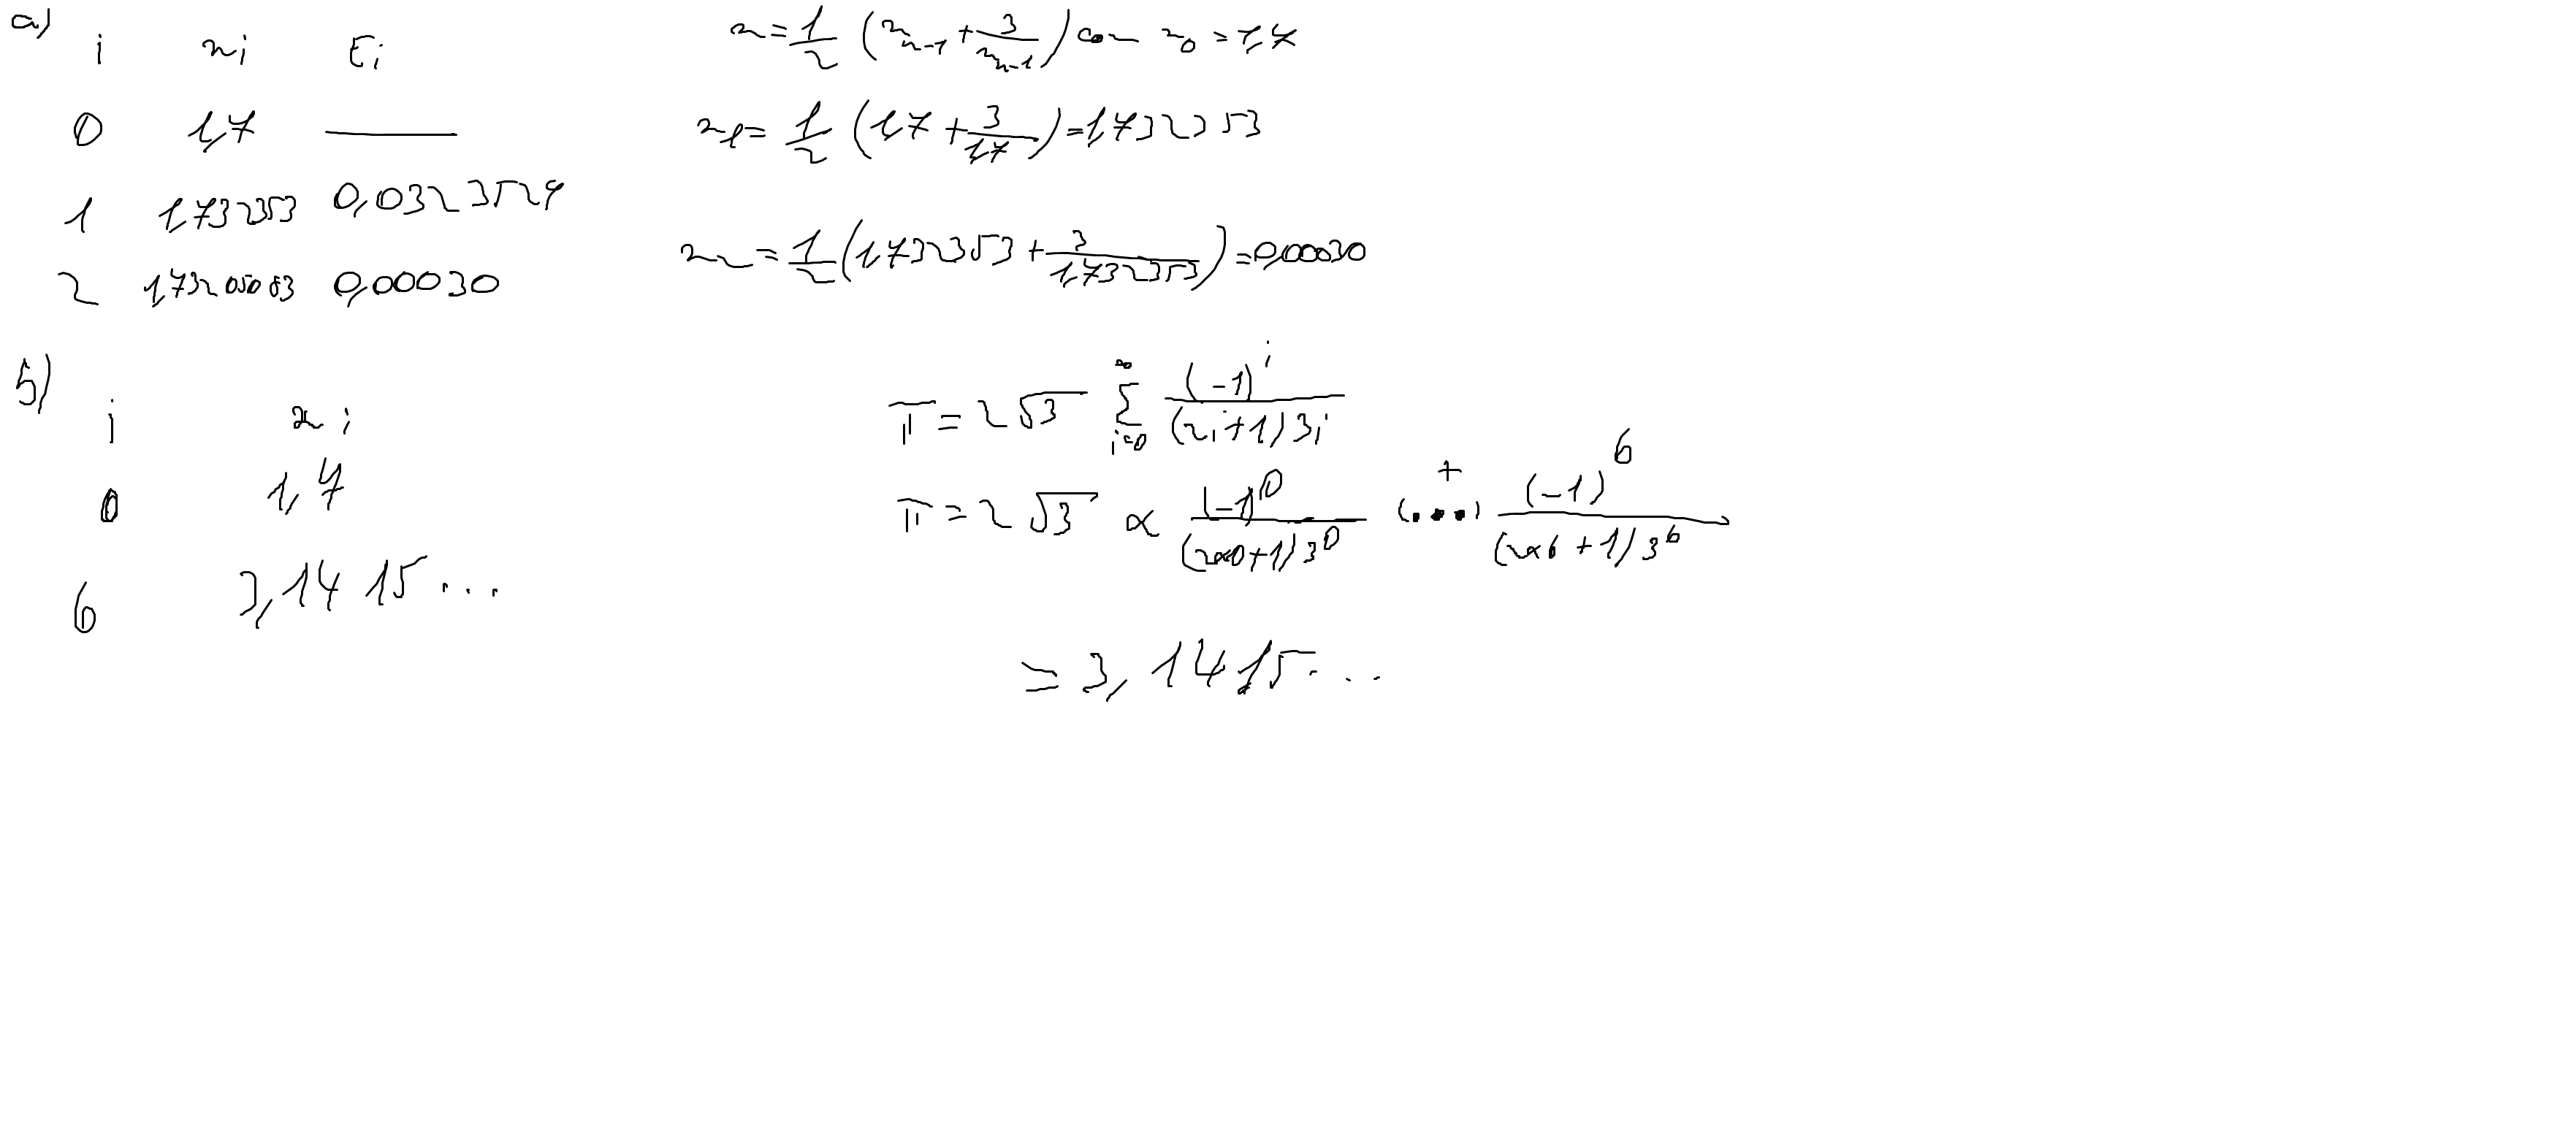 a)
i xi Ei
0 1,7 ——
1 1,732353 0,0323529
2 1,73205083 0,00030
x = 1/2 (x_{n-1} + 3/x_{n-1}) com x_0 = 1,7
x_1 = 1/2 (1,7 + 3/1,7) = 1,732353
x_2 = 1/2 (1,732353 + 3/1,732353) = 0,00030
b)
i xi
0 1,7
6 3,1415...
π = 2√3 ∑_{i=0}^{∞} (-1)^i / (2i+1)3i
π = 2√3 × (-1)^0 / (2×0+1)3^0 (...) + (-1)^6 / (2×6+1)3^6
= 3,1415...